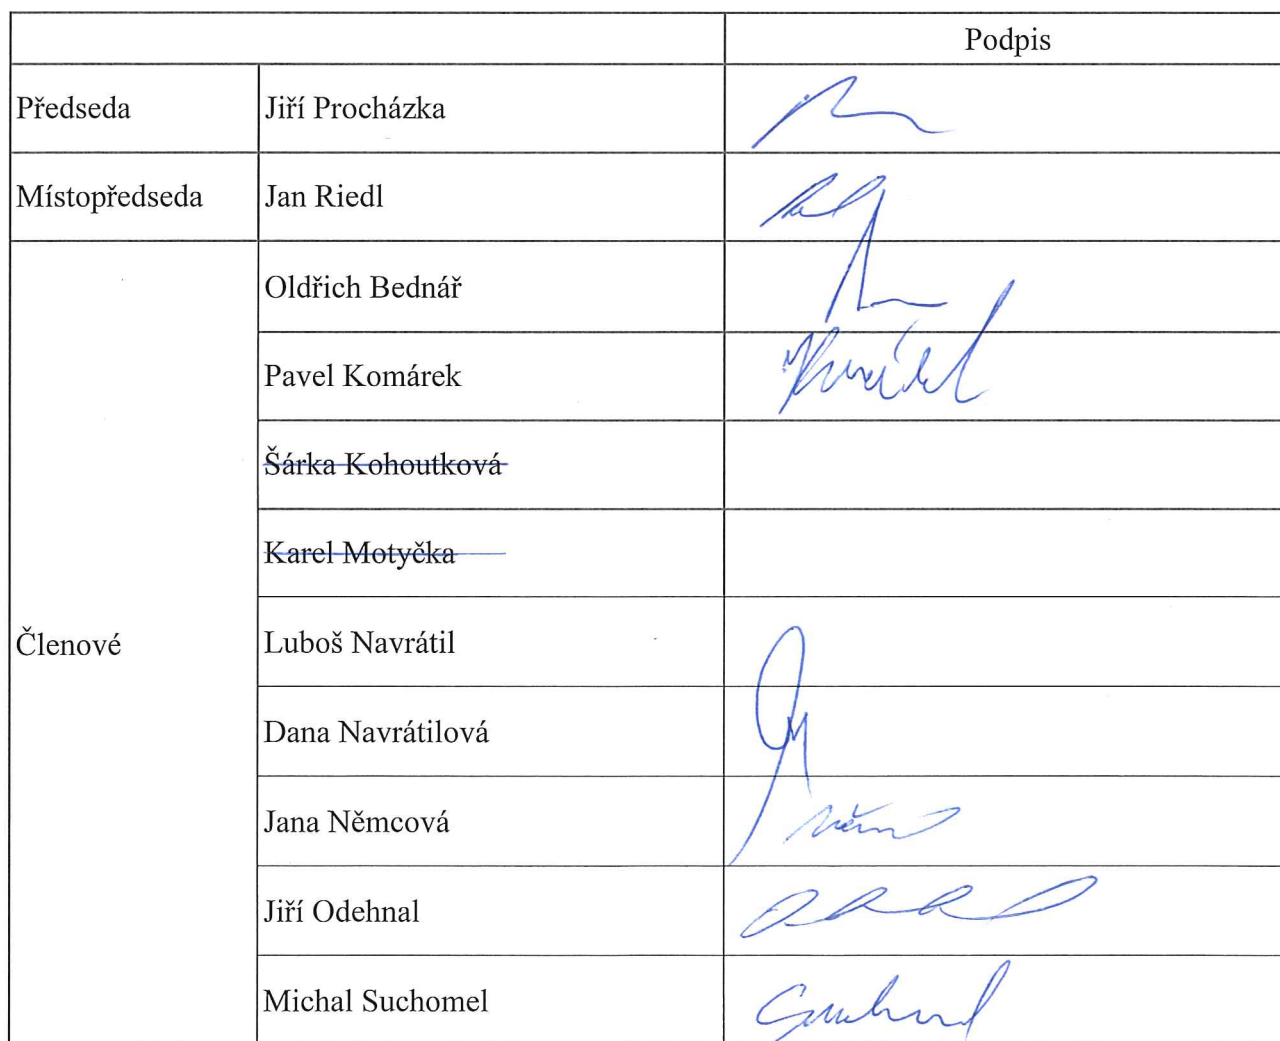 Podpis
Předseda Jiří Procházka
Místopředseda Jan Riedl
Oldřich Bednář
Pavel Komárek
Šárka Kohoutková
Karel Motyčka
Členové
Luboš Navrátil
Dana Navrátilová
Jana Němcová
Jiří Odehnal
Michal Suchomel